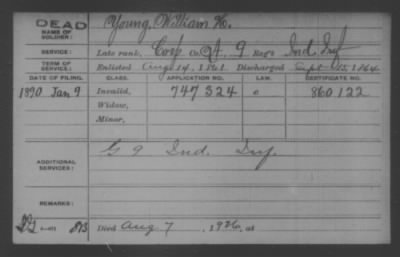 DEAD
NAME OF SOLDIER: Young, William H.
SERVICE: Late rank, Corp Co. A, 9 Reg't Ind. Inf
TERM OF SERVICE: Enlisted Aug 14, 1861 Discharged Sept 15, 1864
DATE OF FILING. CLASS. APPLICATION NO. LAW. CERTIFICATE NO.
1890 Jan 9 Invalid, 747324 c 860122
Widow,
Minor,
ADDITIONAL SERVICES: G 9 Ind. Inf.
REMARKS:
Died Aug 7, 1926, at